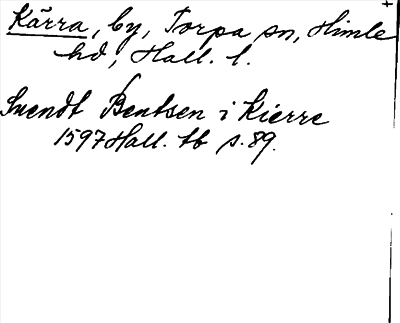 Kärra, by, Torpa sn, Himle
hd, Hall. l.
Suendt Bentsen i Kierre
1597 Hall. tb s. 89.